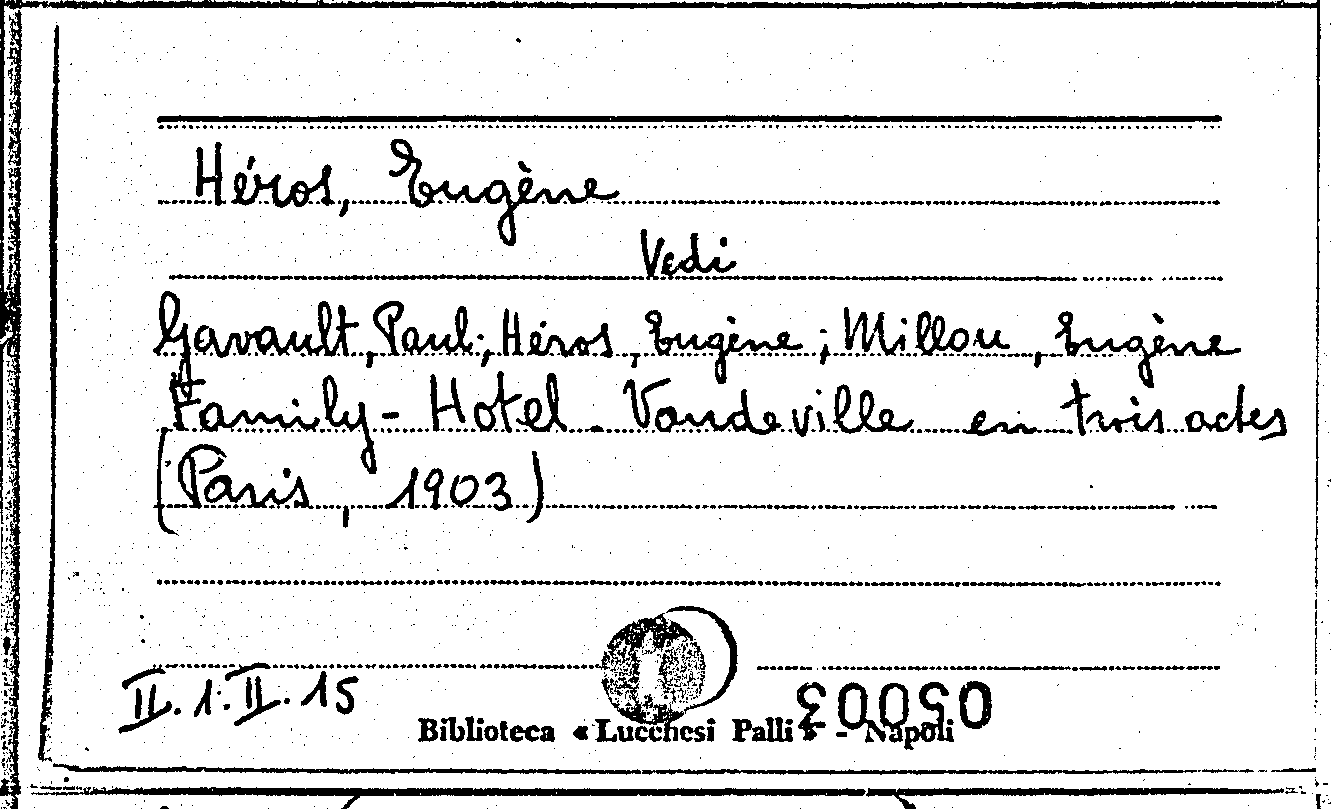 Héros, Eugène
Vedi
Gavault, Paul; Héros, Eugène; Millou, Eugène
Family-Hotel. Vaudeville en trois actes
(Paris, 1903)
II.1.II.15
05003
Biblioteca « Lucchesi Palli » - Napoli